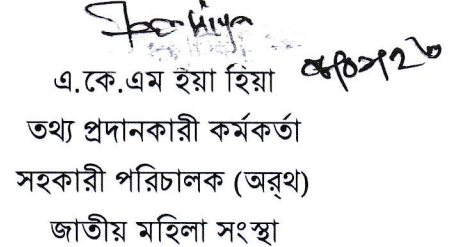 এ.কে.এম হয়া হিয়া
তথ্য প্রদানকারী কর্মকর্তা
সহকারী পরিচালক (অর্থ)
জাতীয় মহিলা সংস্থা